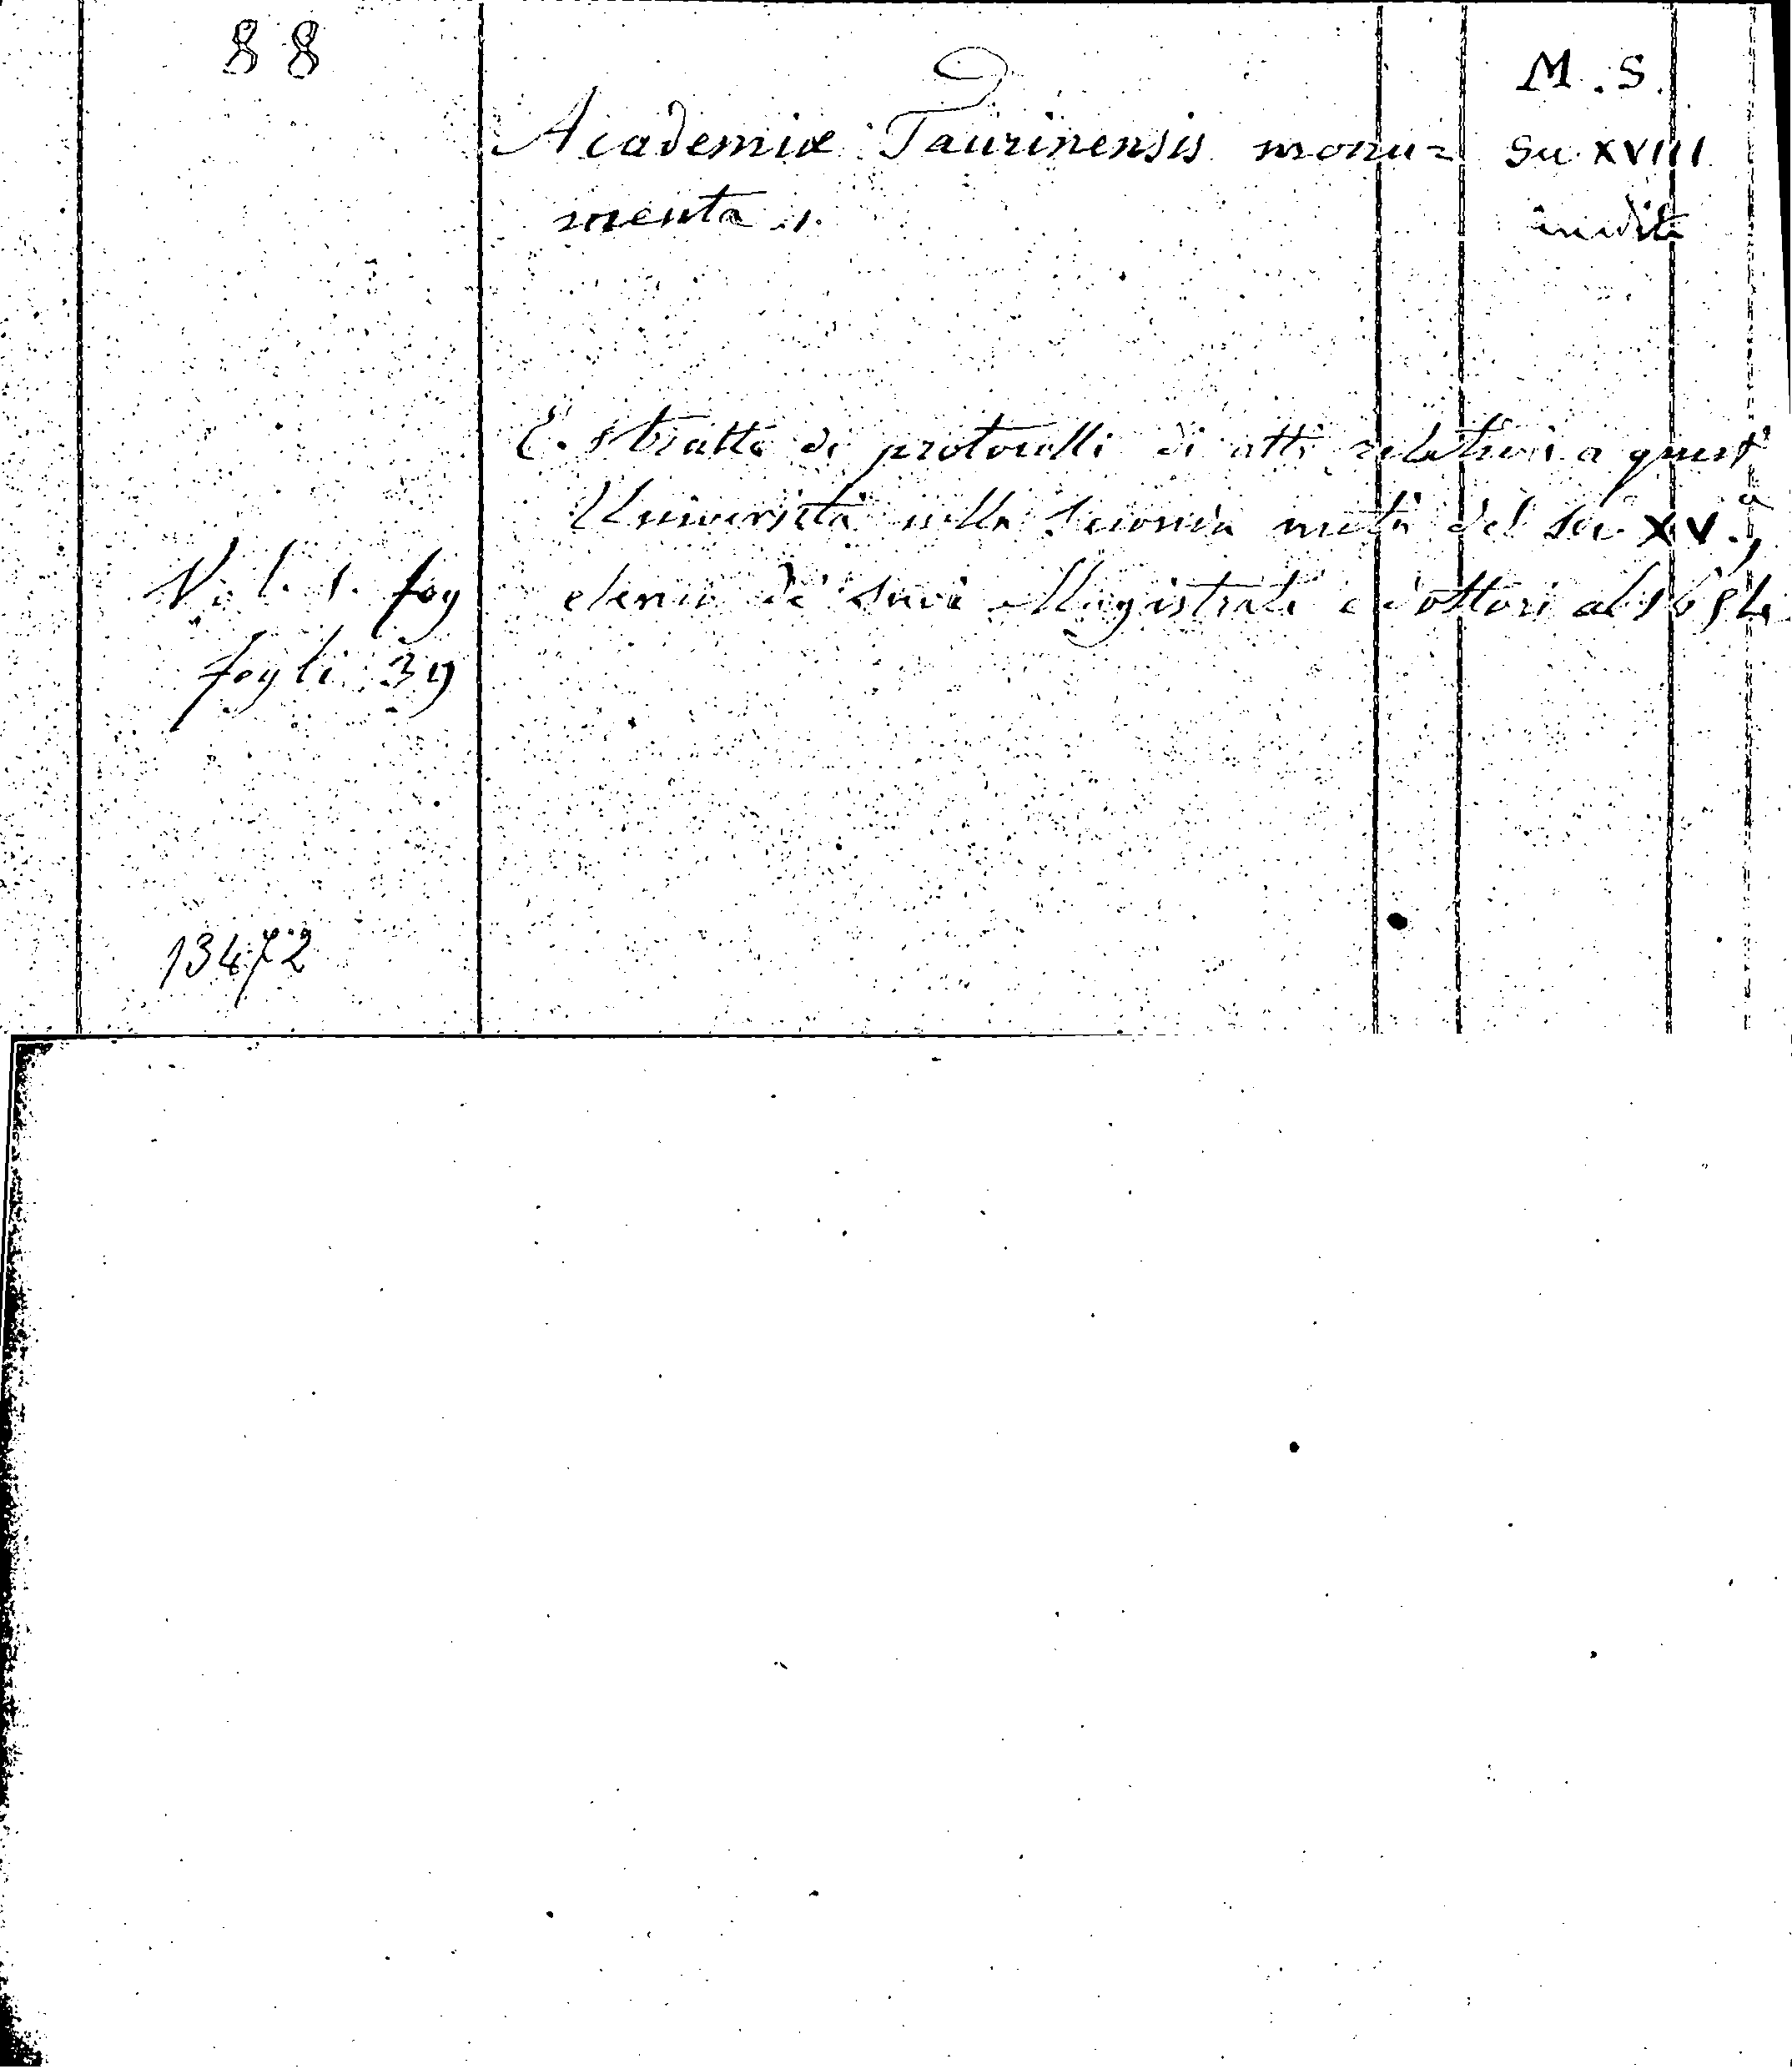 88
M. S.
Academiæ Taurinensis monu=
sec. XVIII
menta 1.
inedito
È estratto di protocolli di atti relativi a quest'
Università nella seconda metà del sec. XV.,
Vol. 1. fog
elenco de' suoi Magistrati e dottori al 1654
fogli 39
13472